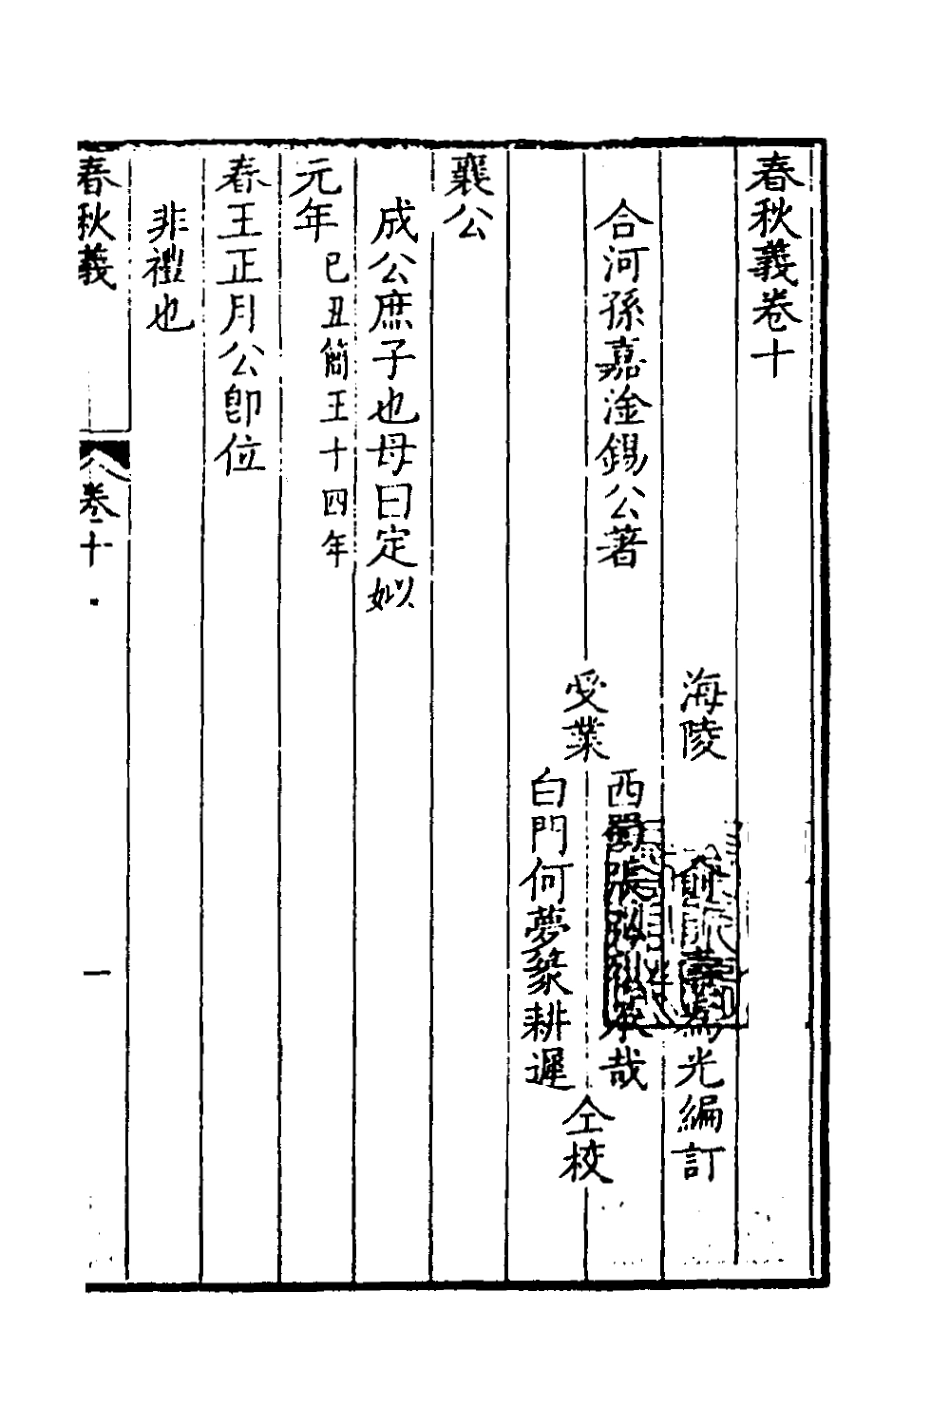 春秋義卷十
海陵 俞為光編訂
合河孫嘉淦錫公著
受業
西蜀張承哉
白門何夢篆耕遲
仝校
襄公
成公庶子也母曰定姒
元年 己丑簡王十四年
春王正月公卽位
非禮也
春秋義 卷十 一